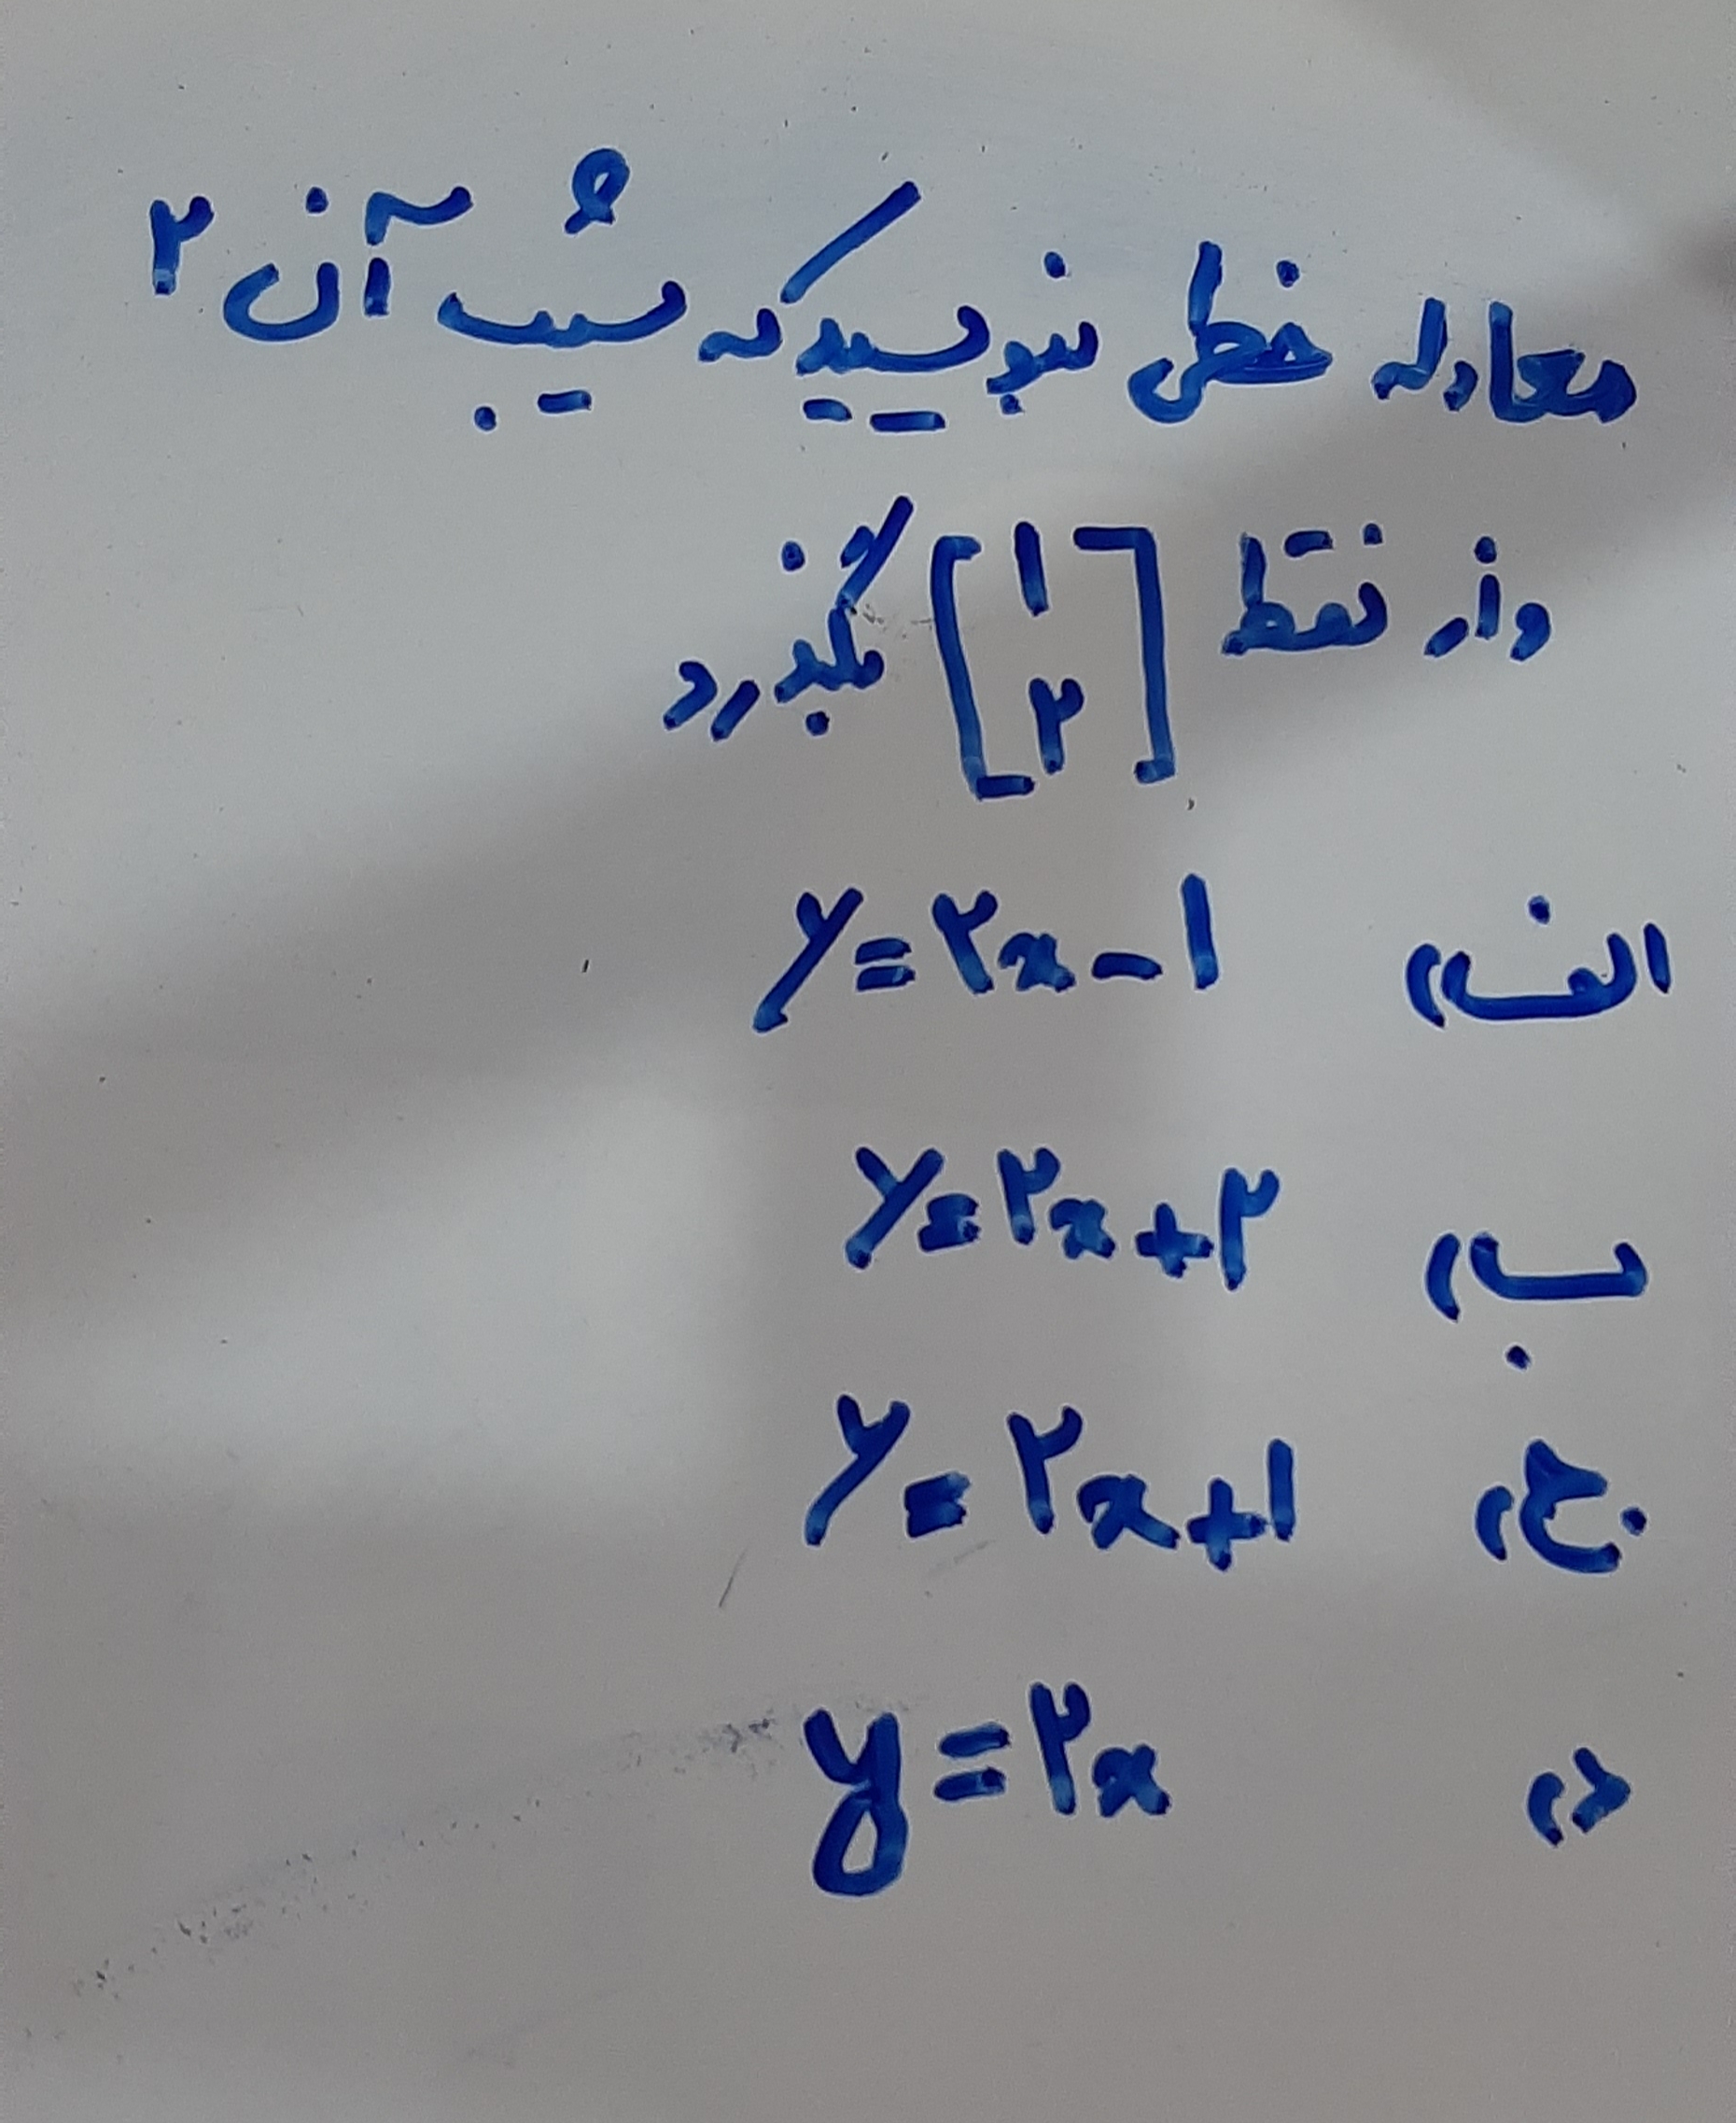 معادله خطی بنویسید که شیب آن ۲
و از نقطه [۱ ۲] بگذرد
الف) y = ۲x - ۱
ب) y = ۲x + ۲
ج) y = ۲x + ۱
د) y = ۲x